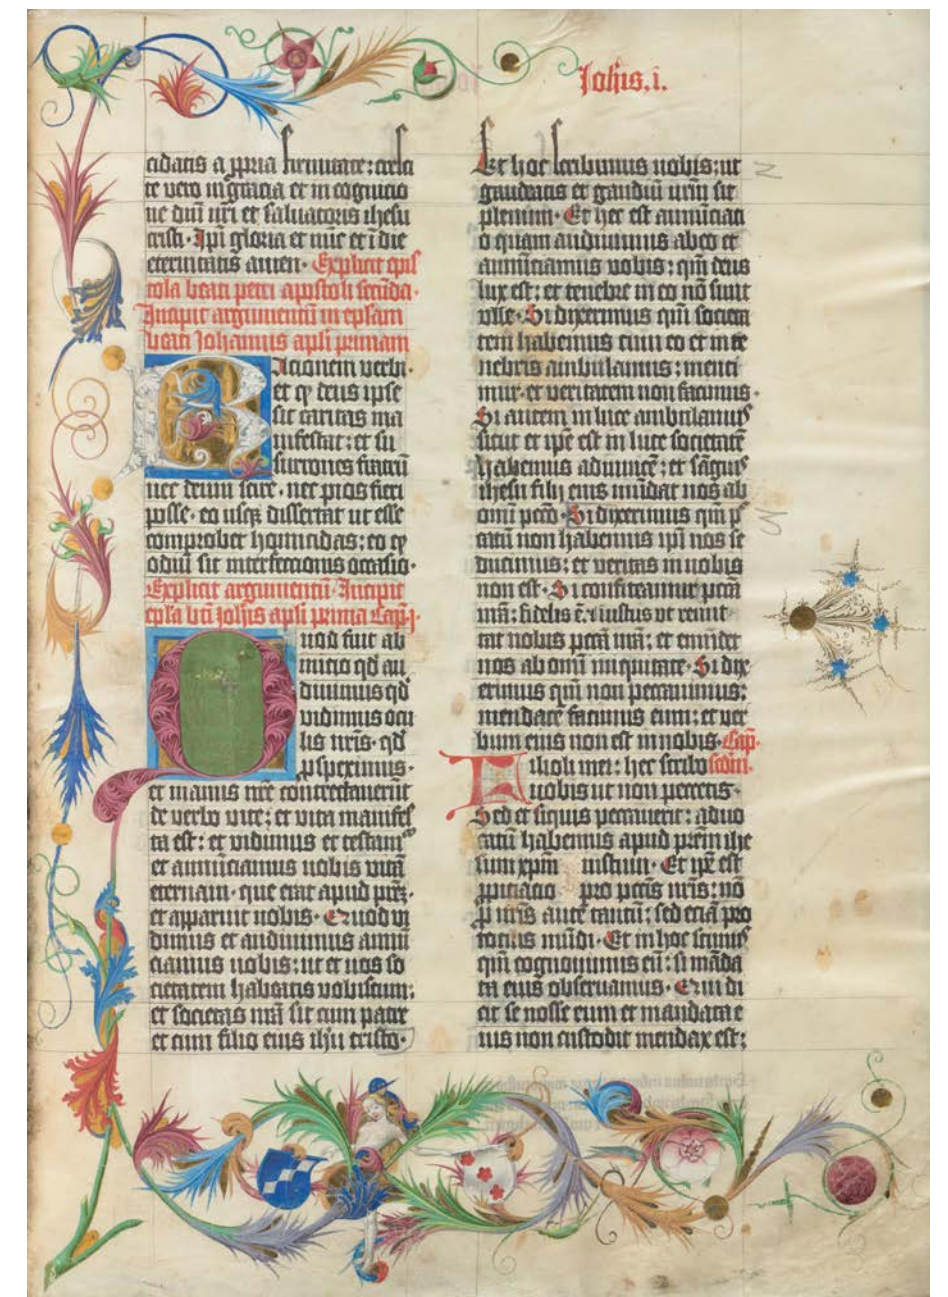 Johis. i.
cidatis a ppria firmitate: cresci
te vero in gracia et in cognicio
ne dni nri et saluatoris ihesu
cristi. Ipi gloria et nuc et i die
eternitatis amen. Explicit epis
tola beati petri apostoli secuda.
Incipit argumentu in eplam
beati Johannis apli primam
Racionem verbi.
et q deus ipse
sit caritas ma
nifestat: et su
surrones fratru
nec deum scire. nec pios fieri
posse. eo usq dissertat ut esse
comprobet homicidas: eo q
odiu sit interfectionis occasio.
Explicit argumentu. Incipit
epla bti Johis apli prima Cap. j.
Quod fuit ab
inicio qd au
diuimus qd
vidimus ocu
lis nris. qd
pspeximus.
et manus nre contrectauerut
de verbo vite: et vita manifes
ta est: et vidimus et testamr
et annuciamus uobis vita
eternam. que erat apud prez.
et apparuit nobis. Quod vi
dimus et audiuimus annu
ciamus uobis: ut et uos so
cietatem habeatis nobiscum:
et societas nra sit cum patre
et cum filio eius ihu cristo.
Et hoc scribimus uobis: ut
gaudeatis et gaudiu urm sit
plenum. Et hec est annuciati
o quam audiuimus ab eo et
annuciamus uobis: qm deus
lux est: et tenebre in eo no sunt
ulle. Si dixerimus qm societa
tem habemus cum eo et in te
nebris ambulamus: menti
mur. et veritatem non facimus.
Si autem in luce ambulamus
sicut et ipe est in luce societate
habemus adinuice: et saguis
ihesu filij eius mudat nos ab
omi pcco. Si dixerimus qm p
catu non habemus ipi nos se
ducimus: et veritas in nobis
non est. Si confiteamur pcca
nra: fidelis e. et iustus ut remit
tat nobis pcca nra: et emudet
nos ab omi iniquitate. Si dix
erimus qm non peccauimus:
mendace facimus eum: et ver
bum eius non est in nobis. Cap.
Filioli mei: hec scribo scdm.
uobis ut non peccetis.
Sed et siquis peccauerit: aduo
catu habemus apud prem ihe
sum xpm iustum. Et ipe est
ppiciacio pro pccis nris: no
p nris aute tantu: sed ecia pro
tocius mudi. Et in hoc scimus
qm cognouimus eu: si mada
ta eius obseruamus. Qui di
cit se nosse eum et mandata e
ius non custodit mendax est: